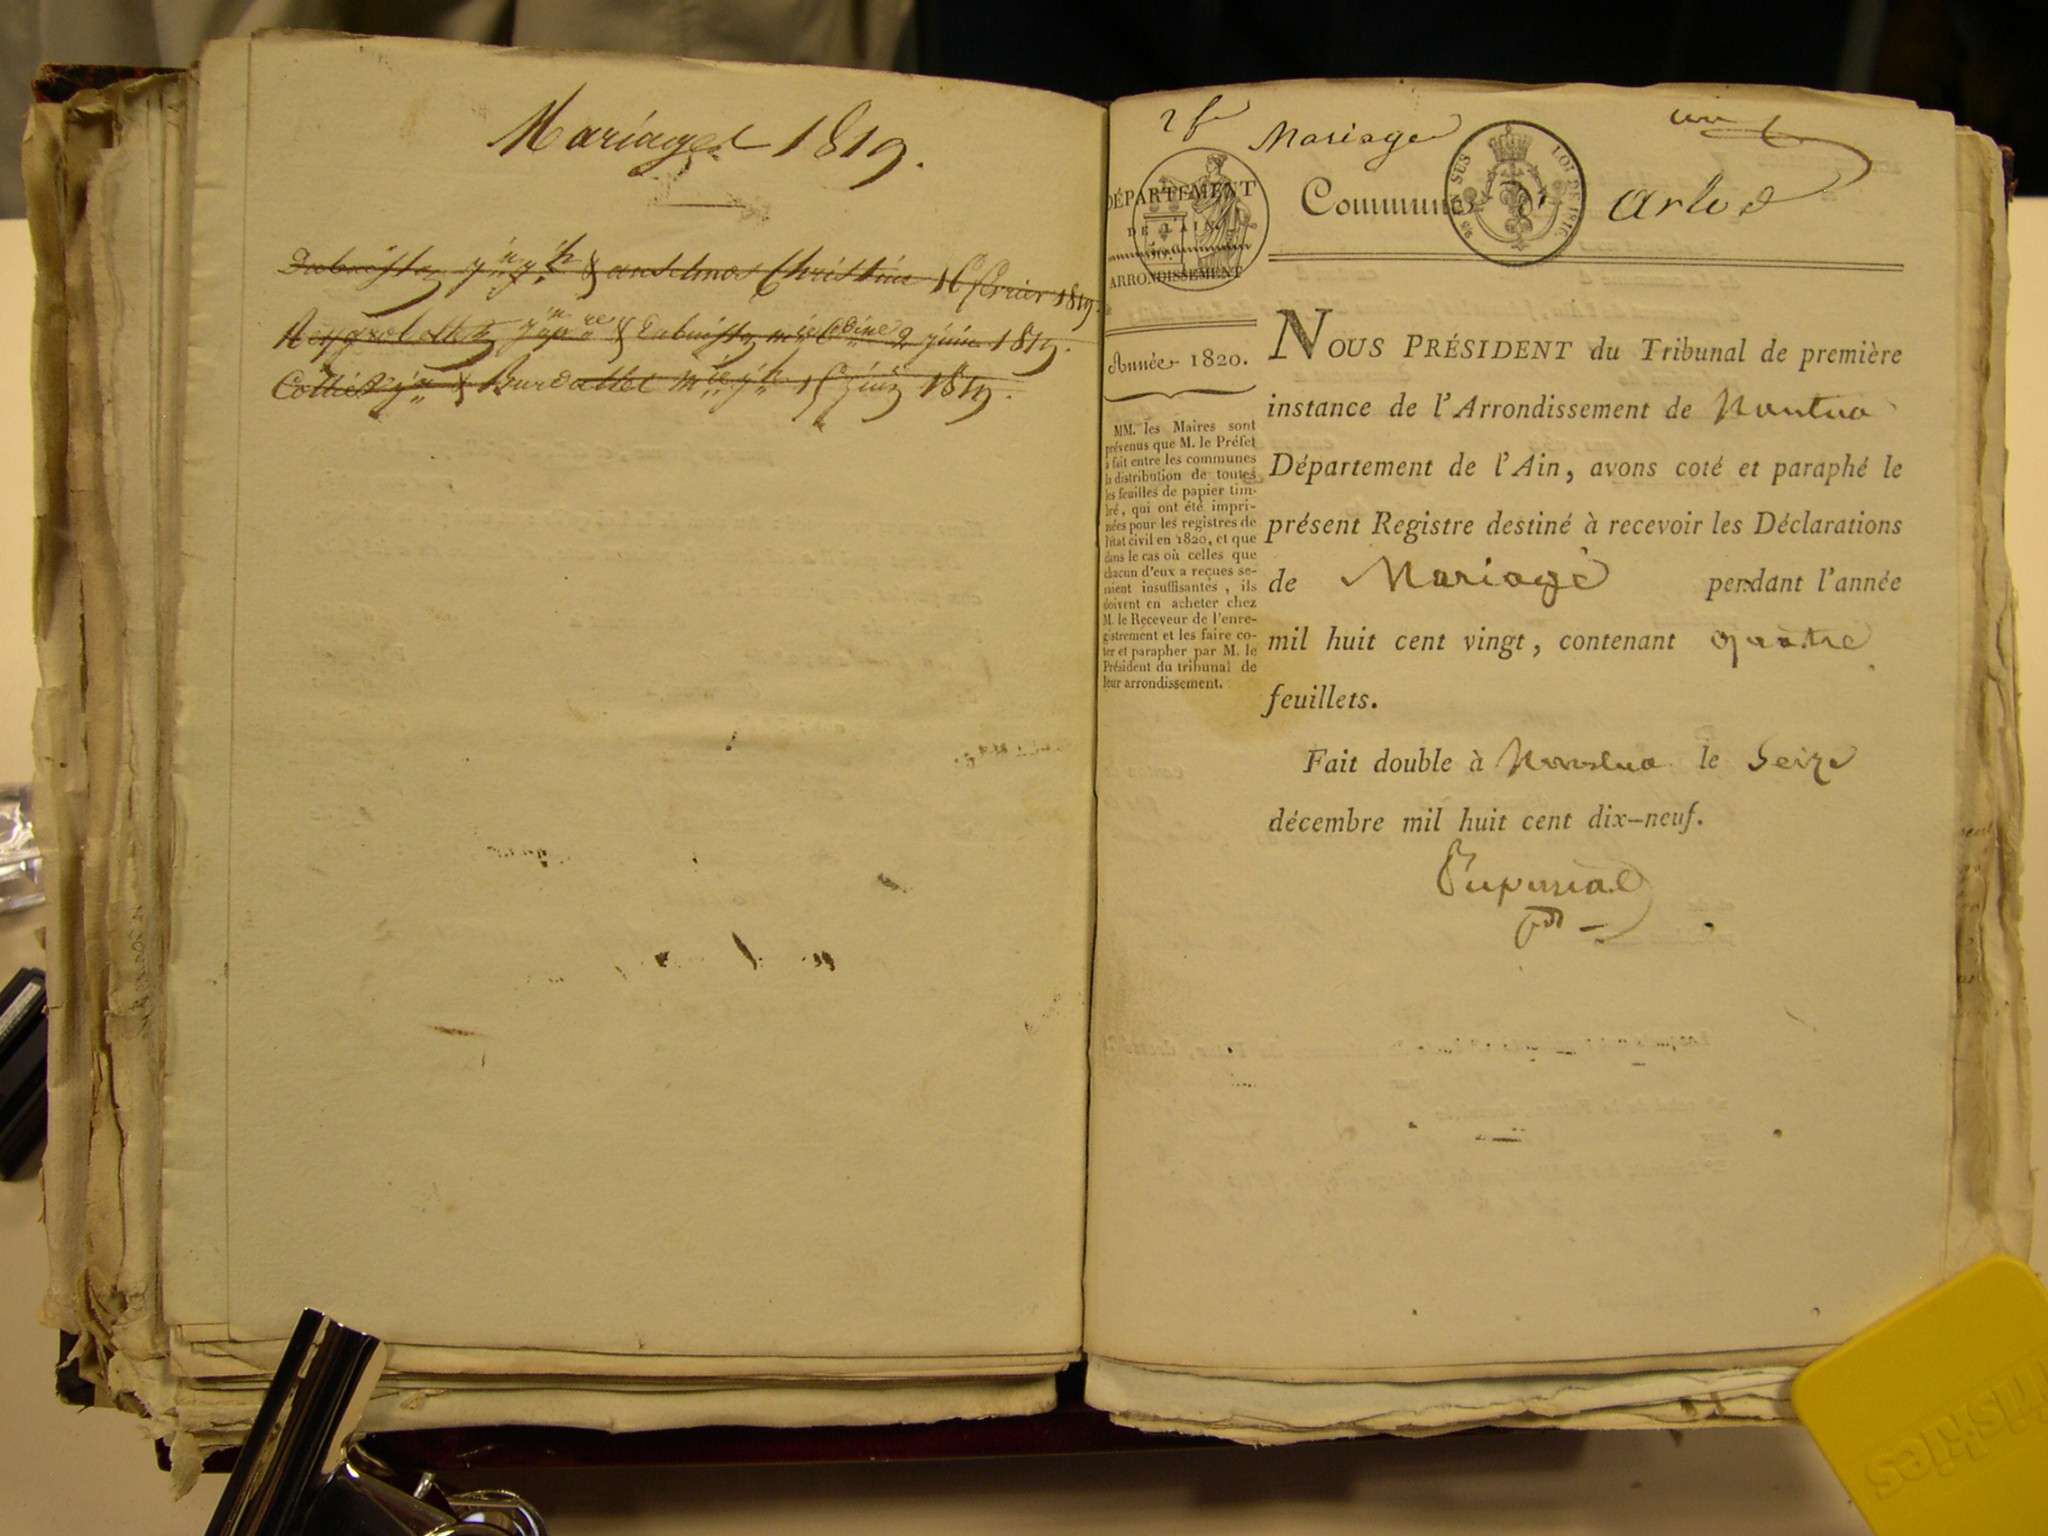 Mariages 1819.
& anselmoz Christine 16 février 1819.
& 2 juin 1819.
& 1819.
2 f
Mariage
un
DÉPARTEMENT
DE L'AIN.
ARRONDISSEMENT
Commune d' arlod
Année 1820.
MM. les Maires sont
prévenus que M. le Préfet
a fait entre les communes
la distribution de toutes
les feuilles de papier tim-
bré, qui ont été impri-
mées pour les registres de
l'état civil en 1820, et que
dans le cas où celles que
chacun d'eux a reçues se-
raient insuffisantes, ils
doivent en acheter chez
M. le Receveur de l'enre-
gistrement et les faire co-
ter et parapher par M. le
Président du tribunal de
leur arrondissement.
NOUS PRÉSIDENT du Tribunal de première
instance de l'Arrondissement de Nantua
Département de l'Ain, avons coté et paraphé le
présent Registre destiné à recevoir les Déclarations
de Mariage pendant l'année
mil huit cent vingt, contenant quatre
feuillets.
Fait double à Nantua le Seize
décembre mil huit cent dix-neuf.